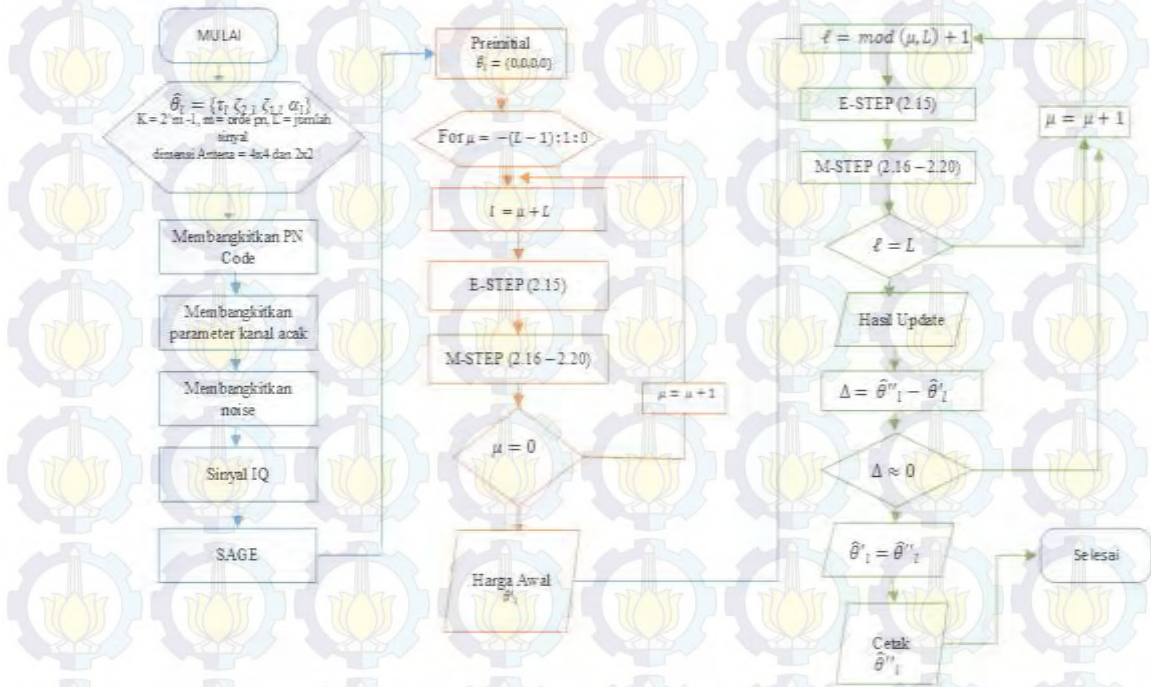 MULAI
θ̂_l = {τ_l ζ_2,l ζ_1,l α_l}
K = 2^m -1, m = orde pn, L = jumlah
sinyal
dimensi Antena = 4x4 dan 2x2
Membangkitkan PN
Code
Membangkitkan
parameter kanal acak
Membangkitkan
noise
Sinyal IQ
SAGE
Preinitial
θ̂_l = {0,0,0,0}
For μ = −(L − 1):1:0
l = μ + L
E-STEP (2.15)
M-STEP (2.16 – 2.20)
μ = μ + 1
μ = 0
Harga Awal
θ̂'_l
ℓ = mod (μ, L) + 1
E-STEP (2.15)
μ = μ + 1
M-STEP (2.16 – 2.20)
ℓ = L
Hasil Update
Δ = θ̂''_l − θ̂'_l
Δ ≈ 0
θ̂'_l = θ̂''_l
Selesai
Cetak
θ̂''_l